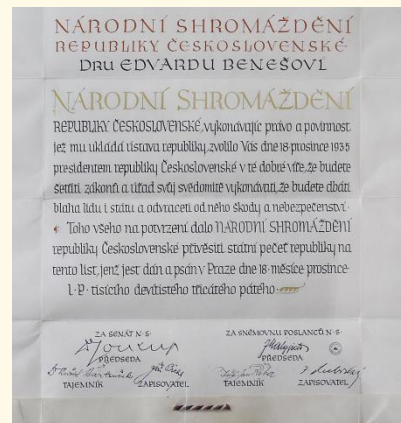 NÁRODNÍ SHROMÁŽDĚNÍ
REPUBLIKY ČESKOSLOVENSKÉ
DRU EDVARDU BENEŠOVI
NÁRODNÍ SHROMÁŽDĚNÍ
REPUBLIKY ČESKOSLOVENSKÉ, vykonávajíc právo a povinnost,
jež mu ukládá ústava republiky, zvolilo Vás dne 18 prosince 1935
presidentem republiky Československé v té dobré víře, že budete
šetřiti zákonů a úřad svůj svědomitě vykonávati, že budete dbáti
blaha lidu i státu a odvraceti od něho škody a nebezpečenství·
Toho všeho na potvrzení dalo NÁRODNÍ SHROMÁŽDĚNÍ
republiky Československé přivěsiti státní pečeť republiky na
tento list, jenž jest dán a psán v Praze dne 18· měsíce prosince·
L·P· tisícího devítistého třicátého pátého·
ZA SENÁT N·S· ZA SNĚMOVNU POSLANCŮ N·S·
PŘEDSEDA PŘEDSEDA
TAJEMNÍK ZAPISOVATEL TAJEMNÍK ZAPISOVATEL